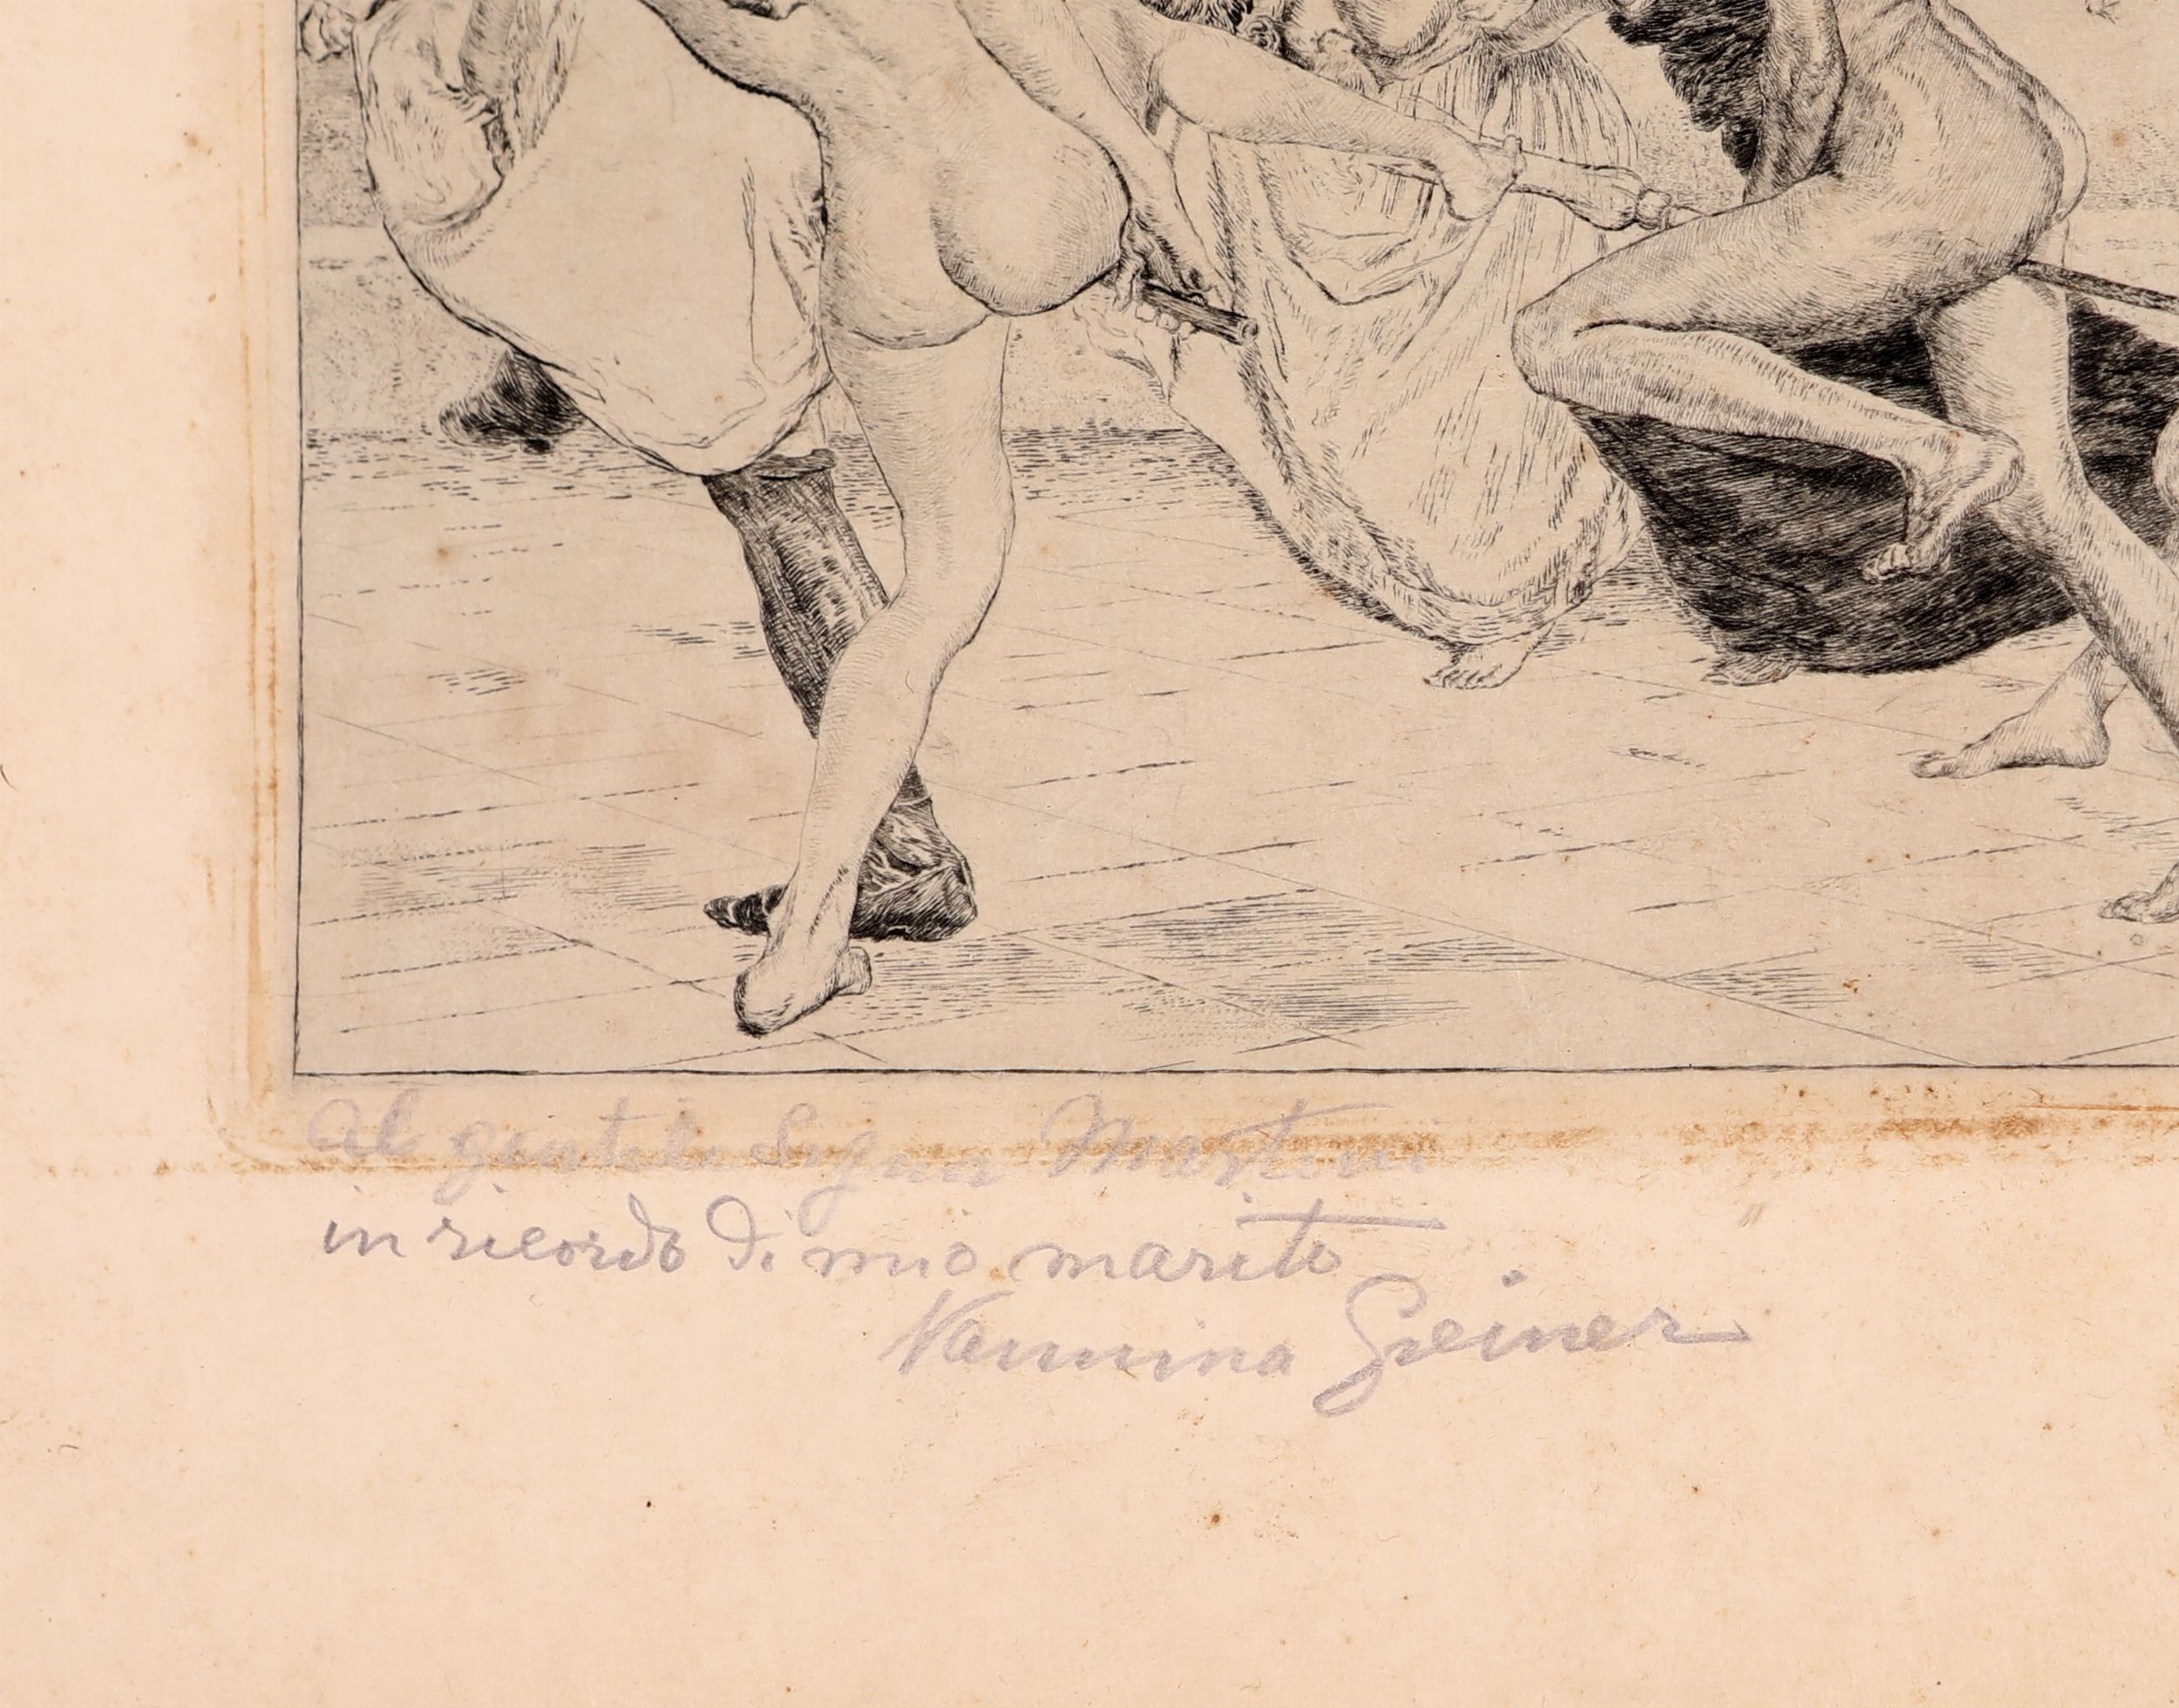 Al gentile Signor Martini
in ricordo di mio marito
Nannina Greiner